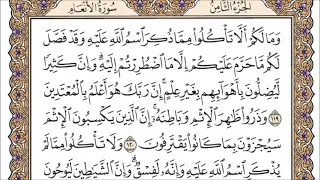 الجزء الثامن
سورة الأنعام
وَمَا لَكُمْ أَلَّا تَأْكُلُوا۟ مِمَّا ذُكِرَ ٱسْمُ ٱللَّهِ عَلَيْهِ وَقَدْ فَصَّلَ
لَكُم مَّا حَرَّمَ عَلَيْكُمْ إِلَّا مَا ٱضْطُرِرْتُمْ إِلَيْهِ ۗ وَإِنَّ كَثِيرًا
لَّيُضِلُّونَ بِأَهْوَآئِهِم بِغَيْرِ عِلْمٍ ۗ إِنَّ رَبَّكَ هُوَ أَعْلَمُ بِٱلْمُعْتَدِينَ
١١٩ وَذَرُوا۟ ظَٰهِرَ ٱلْإِثْمِ وَبَاطِنَهُۥٓ ۚ إِنَّ ٱلَّذِينَ يَكْسِبُونَ ٱلْإِثْمَ
سَيُجْزَوْنَ بِمَا كَانُوا۟ يَقْتَرِفُونَ ١٢٠ وَلَا تَأْكُلُوا۟ مِمَّا لَمْ
يُذْكَرِ ٱسْمُ ٱللَّهِ عَلَيْهِ وَإِنَّهُۥ لَفِسْقٌ ۗ وَإِنَّ ٱلشَّيَٰطِينَ لَيُوحُونَ